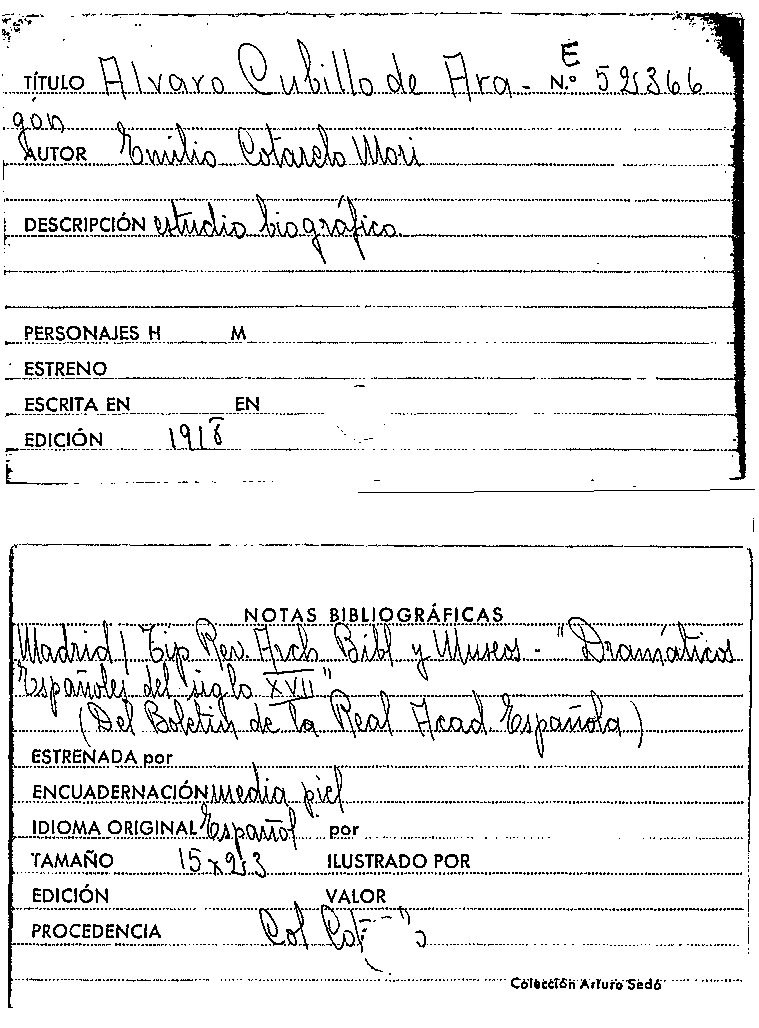 E
TÍTULO Alvaro Cubillo de Ara- N.º 52366
gón
AUTOR Emilio Cotarelo Mori
DESCRIPCIÓN estudio biográfico.
PERSONAJES H M
ESTRENO
ESCRITA EN EN
EDICIÓN 1918
NOTAS BIBLIOGRÁFICAS
Madrid / Tip Rev. Arch Bibl y Museos - "Dramáticos
Españoles del siglo XVII"
(Del Boletín de la Real Acad Española)
ESTRENADA por
ENCUADERNACIÓN media piel
IDIOMA ORIGINAL Español por
TAMAÑO 15x23 ILUSTRADO POR
EDICIÓN VALOR
PROCEDENCIA Col
Colección Arturo Sedó